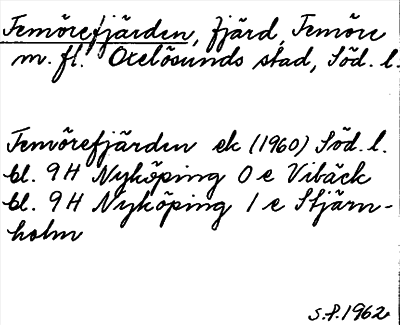 Femörefjärden, fjärd, Femöre
m. fl. Oxelösunds stad, Söd. l.
Femörefjärden ek (1960) Söd. l.
bl. 9H Nyköping 0 e Vibäck
bl. 9H Nyköping 1 e Stjärn-
holm
S.P. 1962